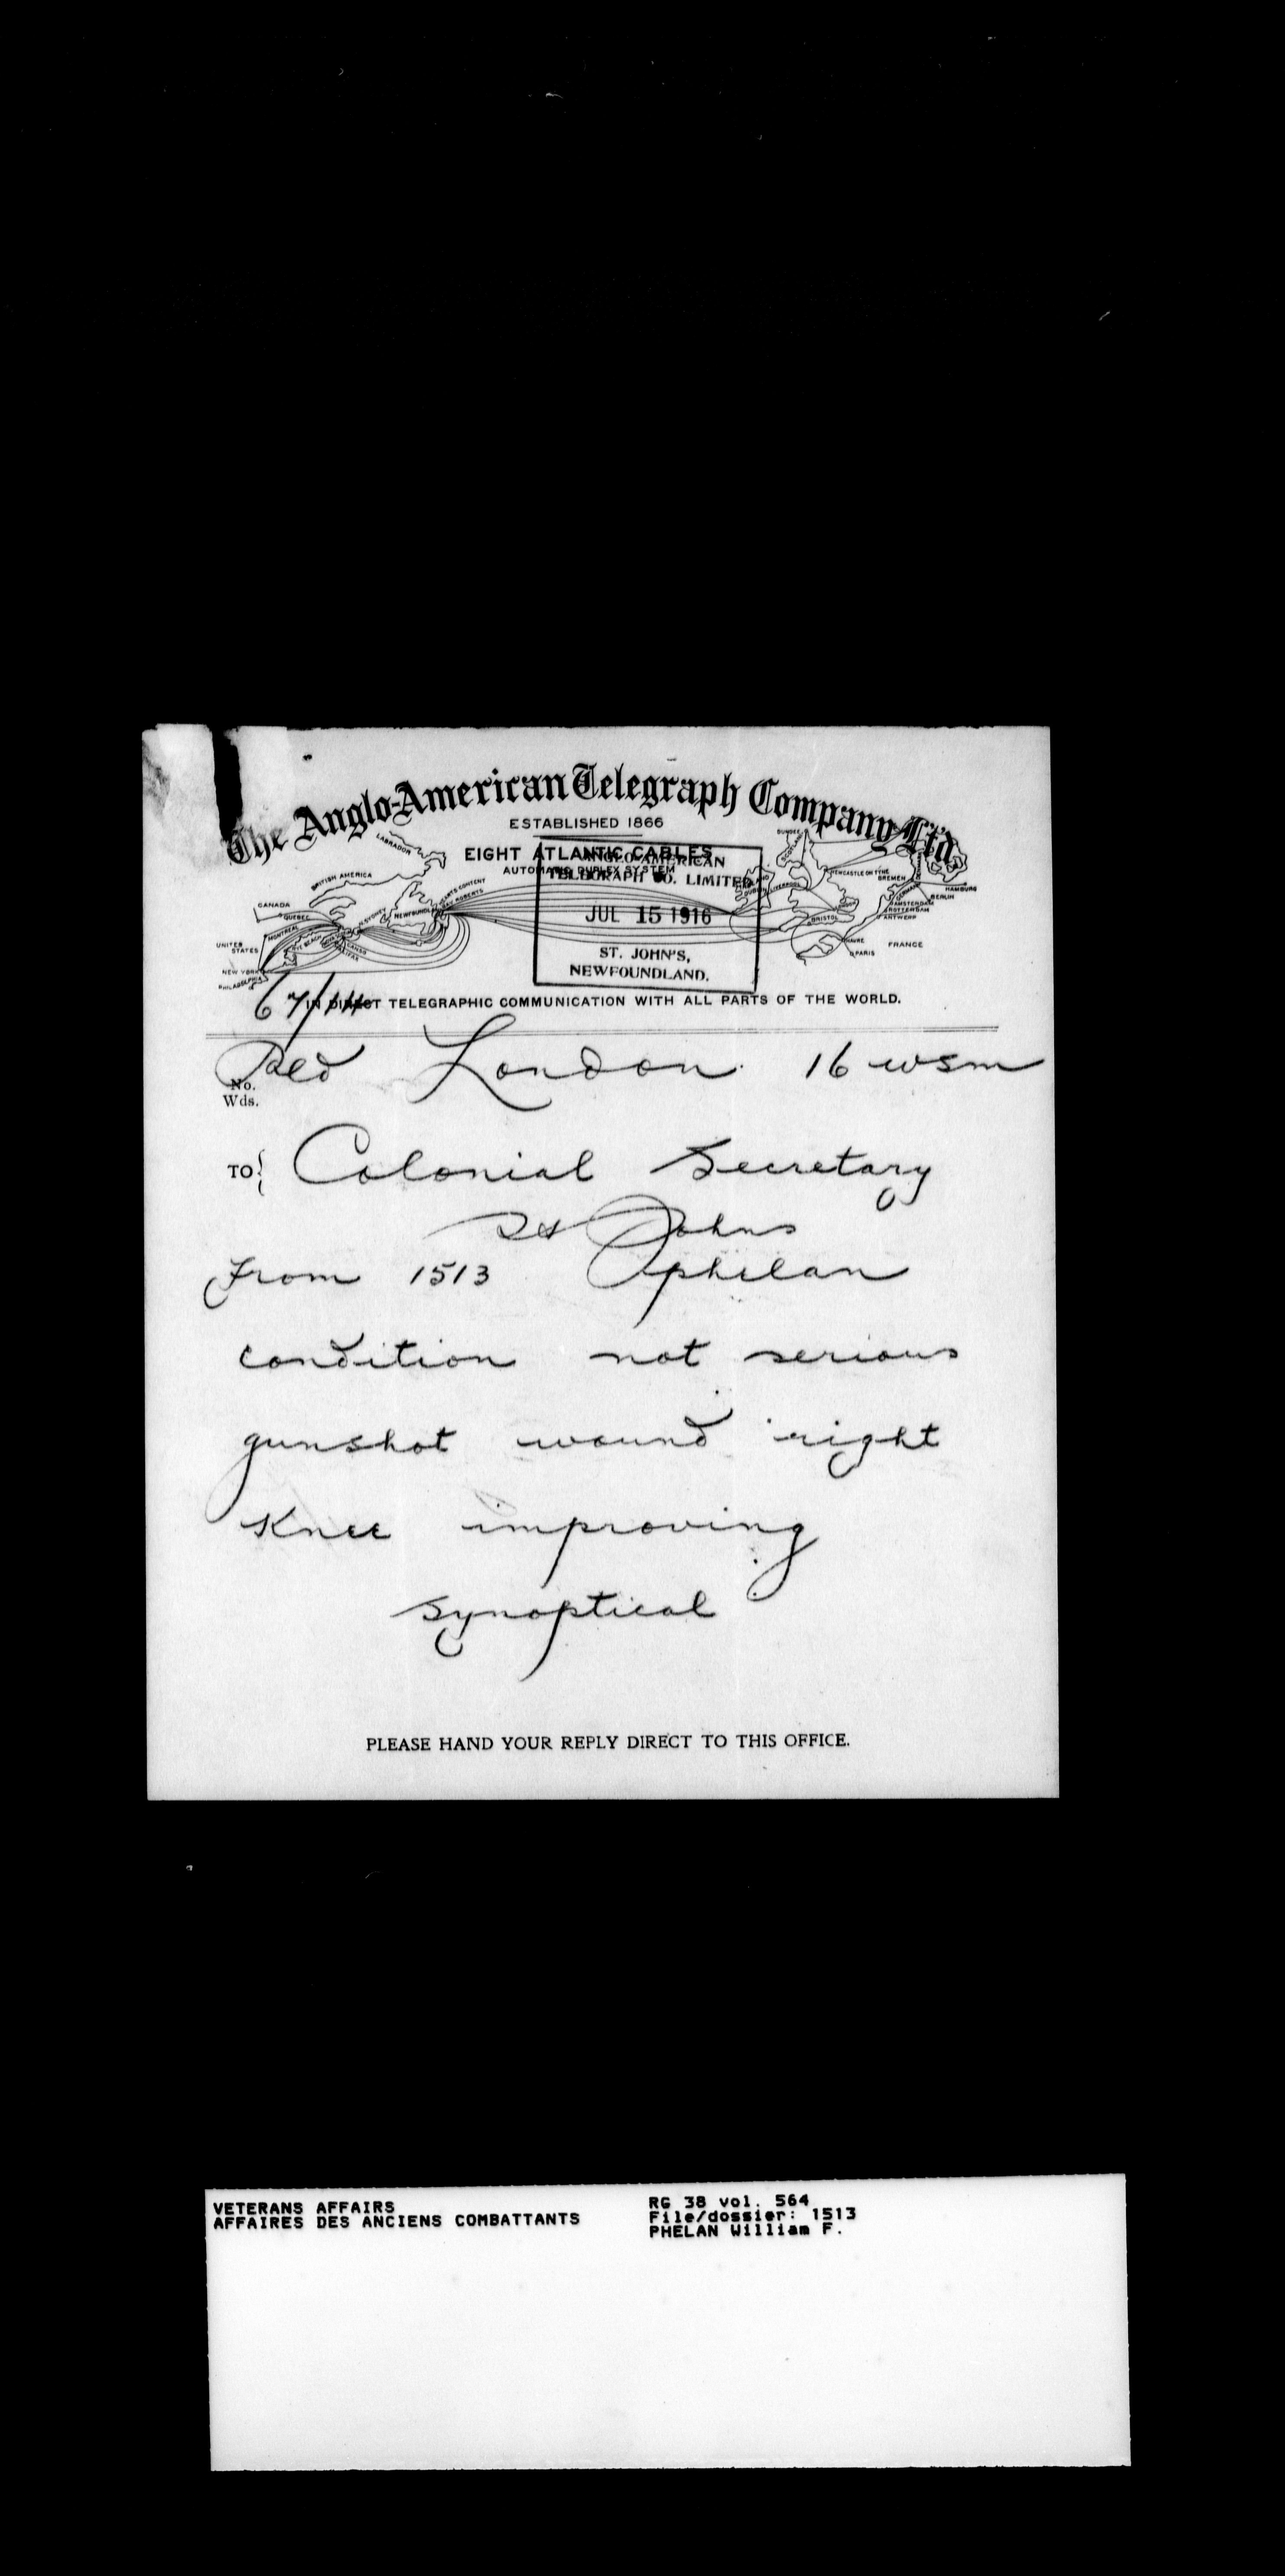 The Anglo-American Telegraph Company, Ltd.
ESTABLISHED 1866
EIGHT ATLANTIC CABLES
AUTOMATIC DUPLEX SYSTEM
ANGLO-AMERICAN
TELEGRAPH CO. LIMITED
JUL 15 1916
ST. JOHN'S,
NEWFOUNDLAND.
LABRADOR
BRITISH AMERICA
CANADA
QUEBEC
MONTREAL
UNITED STATES
NEW YORK
PHILADELPHIA
N. SYDNEY
NEWFOUNDLAND
HEARTS CONTENT
DUNDEE
NEWCASTLE ON TYNE
BREMEN
HAMBURG
BERLIN
AMSTERDAM
ROTTERDAM
ANTWERP
GERMANY
LIVERPOOL
DUBLIN
BRISTOL
HAVRE
PARIS
FRANCE
IN DIRECT TELEGRAPHIC COMMUNICATION WITH ALL PARTS OF THE WORLD.
London 16 wsm
No.
Wds.
TO Colonial Secretary
St Johns
From 1513 Phelan
condition not serious
gunshot wound right
Knee improving
synoptical
PLEASE HAND YOUR REPLY DIRECT TO THIS OFFICE.
VETERANS AFFAIRS
AFFAIRES DES ANCIENS COMBATTANTS
RG 38 vol. 564
File/dossier: 1513
PHELAN William F.